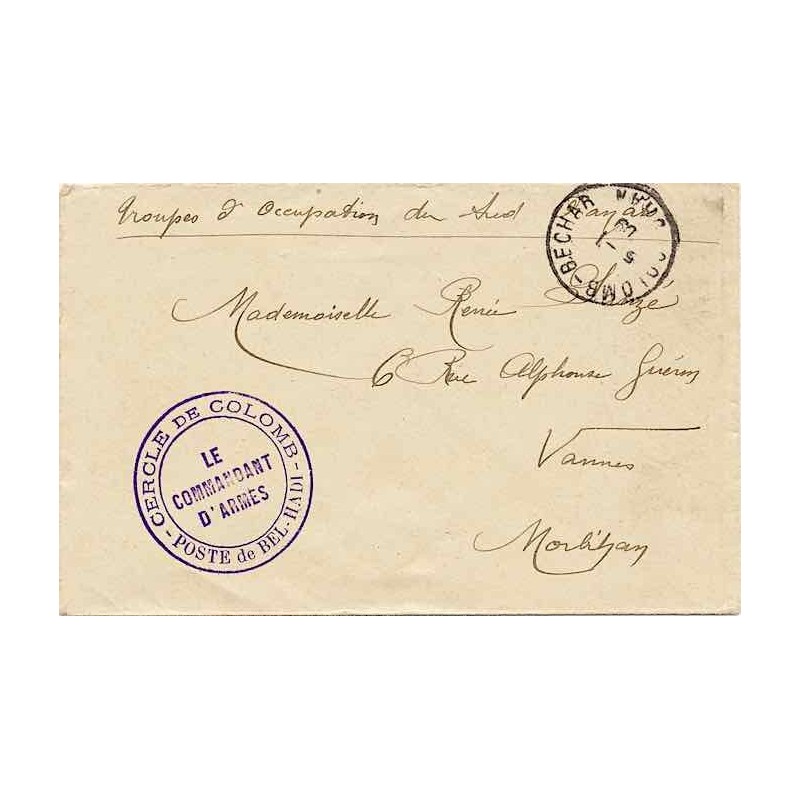 Troupes d'Occupation du Sud
COLOMB-BECHAR ORAN
5
Mademoiselle Renée
6 Rue Alphonse Guérin
Vannes
Morbihan
CERCLE DE COLOMB-
LE
COMMANDANT
D'ARMES
- POSTE de BEL-HADI -